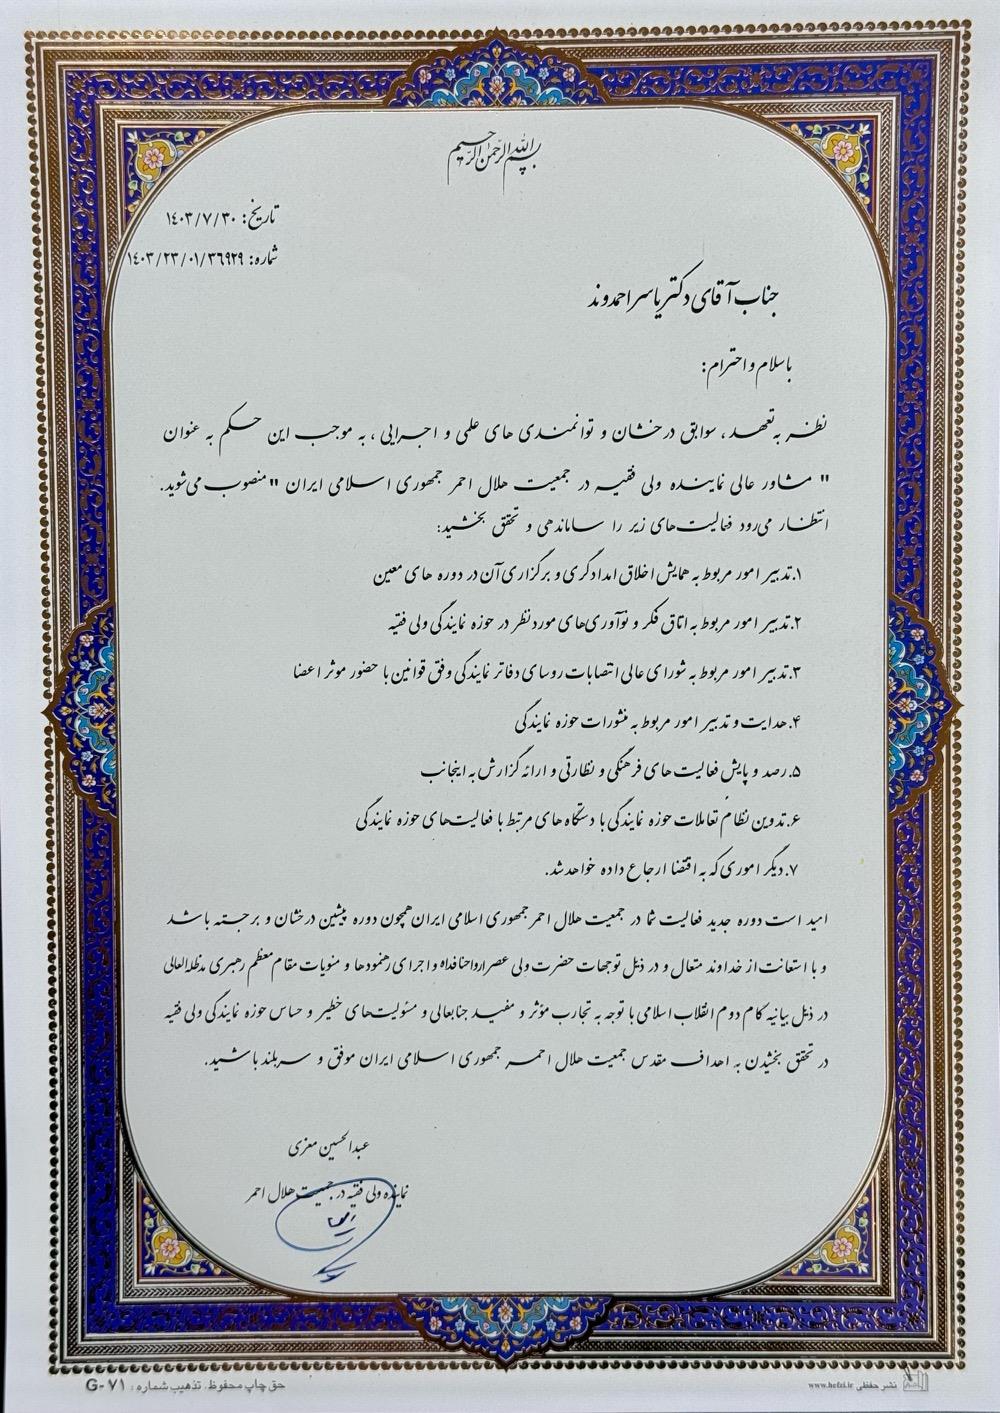 بسم الله الرحمن الرحیم
تاریخ: ۱۴۰۳/۷/۳۰
شماره: ۱۴۰۳/۲۳/۰۱/۳۶۹۲۹
جناب آقای دکتر یاسر احمدوند
با سلام و احترام:
نظر به تعهد، سوابق درخشان و توانمندی های علمی و اجرایی، به موجب این حکم به عنوان
" مشاور عالی نماینده ولی فقیه در جمعیت هلال احمر جمهوری اسلامی ایران " منصوب می‌شوید.
انتظار می‌رود فعالیت‌های زیر را ساماندهی و تحقق بخشید:
۱. تدبیر امور مربوط به همایش اخلاق امدادگری و برگزاری آن در دوره های معین
۲. تدبیر امور مربوط به اتاق فکر و نوآوری‌های مورد نظر در حوزه نمایندگی ولی فقیه
۳. تدبیر امور مربوط به شورای عالی انتصابات روسای دفاتر نمایندگی وفق قوانین با حضور موثر اعضا
۴. هدایت و تدبیر امور مربوط به منشورات حوزه نمایندگی
۵. رصد و پایش فعالیت های فرهنگی و نظارتی و ارائه گزارش به اینجانب
۶. تدوین نظام تعاملات حوزه نمایندگی با دستگاه های مرتبط با فعالیت‌های حوزه نمایندگی
۷. دیگر اموری که به اقتضا ارجاع داده خواهد شد.
امید است دوره جدید فعالیت شما در جمعیت هلال احمر جمهوری اسلامی ایران همچون دوره پیشین درخشان و برجسته باشد
و با استعانت از خداوند متعال و در ذیل توجهات حضرت ولی عصر ارواحنا فداه و اجرای رهنمودها و منویات مقام معظم رهبری مدظله العالی
در ذیل بیانیه گام دوم انقلاب اسلامی با توجه به تجارب مؤثر و مفید جنابعالی و مسئولیت‌های خطیر و حساس حوزه نمایندگی ولی فقیه
در تحقق بخشیدن به اهداف مقدس جمعیت هلال احمر جمهوری اسلامی ایران موفق و سربلند باشید.
عبدالحسین معزی
نماینده ولی فقیه در جمعیت هلال احمر
حق چاپ محفوظ. تذهیب شماره: G-۷۱
نشر حفظی www.hefzi.ir